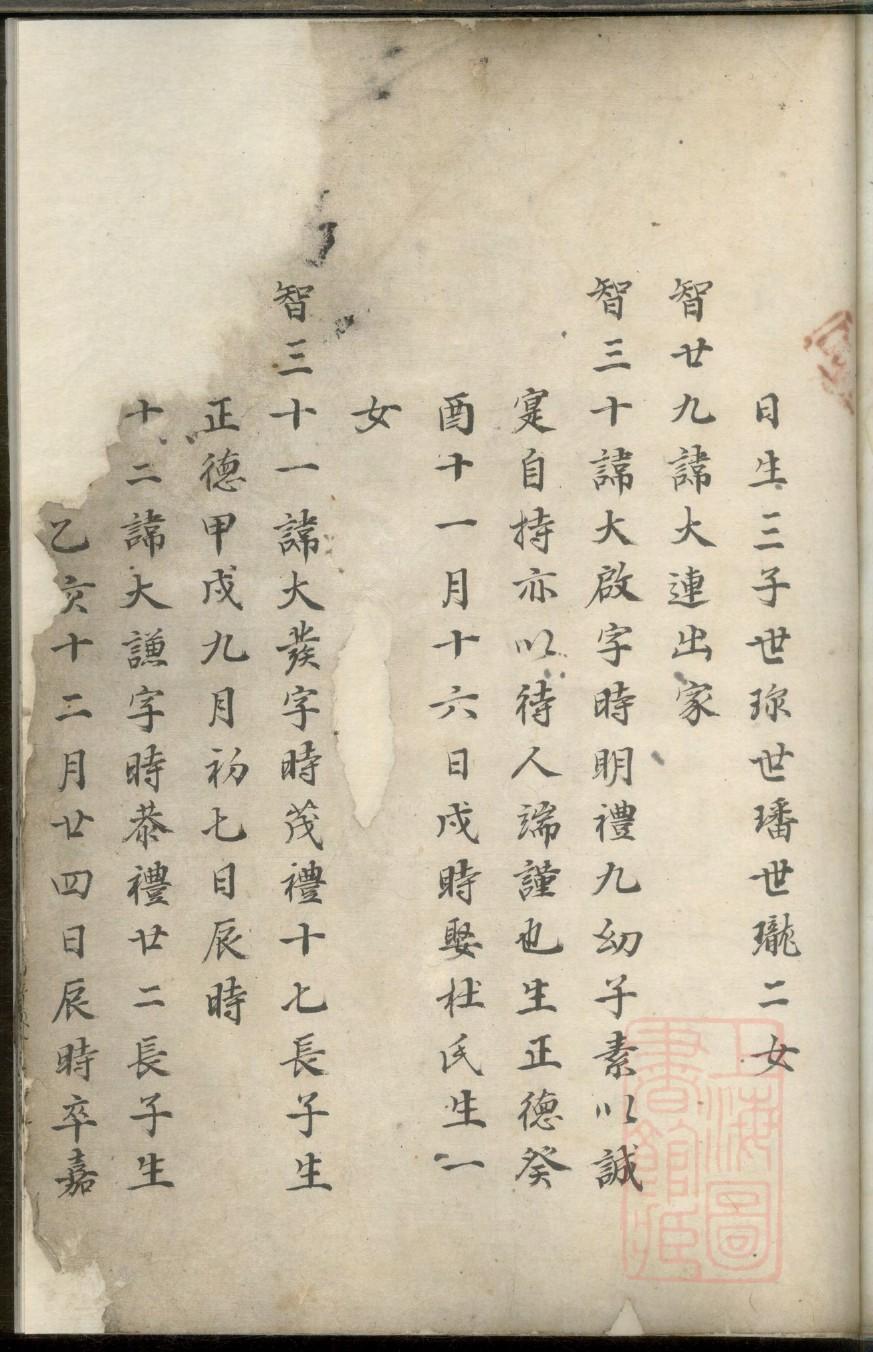 日生三子世珎世璠世瓏二女
智廿九諱大連出家
智三十諱大啟字時明禮九幼子素以誠
寔自持亦以待人端謹也生正德癸
酉十一月十六日戌時娶杜氏生一
女
智三十一諱大發字時茂禮十七長子生
正德甲戌九月初七日辰時
十二諱大謙字時恭禮廿二長子生
乙亥十二月廿四日辰時卒嘉
上海圖書館藏